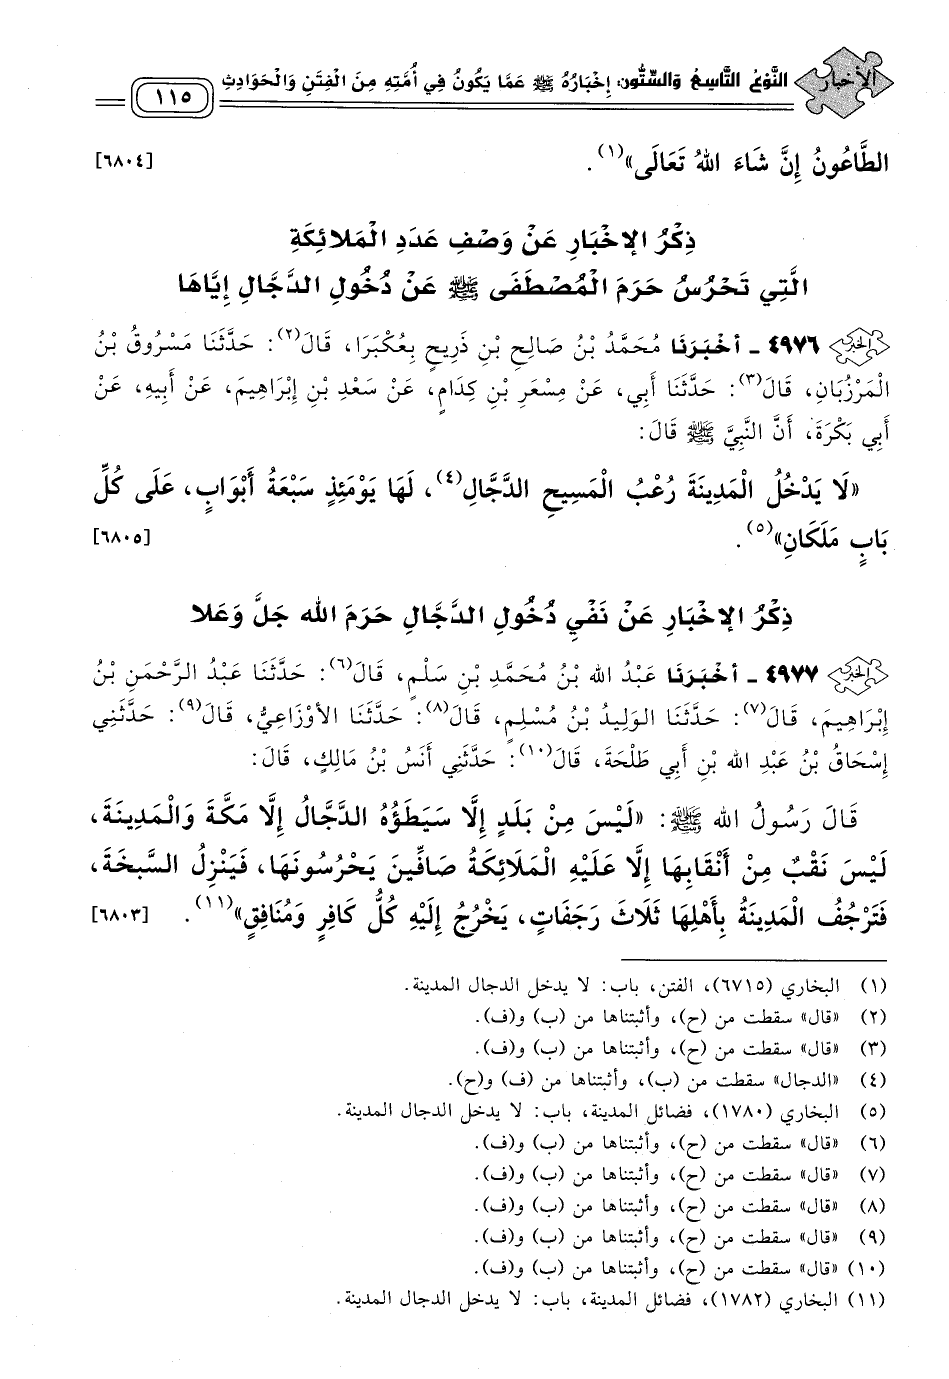 الأخبار
النَّوْعُ التَّاسِعُ وَالسِّتُّونَ: إِخْبَارُهُ ﷺ عَمَّا يَكُونُ فِي أُمَّتِهِ مِنَ الْفِتَنِ وَالْحَوَادِثِ
١١٥
الطَّاعُونُ إِنَّ شَاءَ اللهُ تَعَالَى»(١). [٦٨٠٤]
ذِكْرُ الإِخْبَارِ عَنْ وَصْفِ عَدَدِ الْمَلائِكَةِ
الَّتِي تَحْرُسُ حَرَمَ الْمُصْطَفَى ﷺ عَنْ دُخُولِ الدَّجَّالِ إِيَّاهَا
٤٩٧٦ - أَخْبَرَنَا مُحَمَّدُ بْنُ صَالِحِ بْنِ ذَرِيحٍ بِعُكْبَرَا، قَالَ(٢): حَدَّثَنَا مَسْرُوقُ بْنُ
الْمَرْزُبَانِ، قَالَ(٣): حَدَّثَنَا أَبِي، عَنْ مِسْعَرِ بْنِ كِدَامٍ، عَنْ سَعْدِ بْنِ إِبْرَاهِيمَ، عَنْ أَبِيهِ، عَنْ
أَبِي بَكْرَةَ، أَنَّ النَّبِيَّ ﷺ قَالَ:
«لَا يَدْخُلُ الْمَدِينَةَ رُعْبُ الْمَسِيحِ الدَّجَّالِ(٤)، لَهَا يَوْمَئِذٍ سَبْعَةُ أَبْوَابٍ، عَلَى كُلِّ
بَابٍ مَلَكَانِ»(٥). [٦٨٠٥]
ذِكْرُ الإِخْبَارِ عَنْ نَفْيِ دُخُولِ الدَّجَّالِ حَرَمَ الله جَلَّ وَعَلا
٤٩٧٧ - أَخْبَرَنَا عَبْدُ الله بْنُ مُحَمَّدِ بْنِ سَلْمٍ، قَالَ(٦): حَدَّثَنَا عَبْدُ الرَّحْمَنِ بْنُ
إِبْرَاهِيمَ، قَالَ(٧): حَدَّثَنَا الوَلِيدُ بْنُ مُسْلِمٍ، قَالَ(٨): حَدَّثَنَا الأَوْزَاعِيُّ، قَالَ(٩): حَدَّثَنِي
إِسْحَاقُ بْنُ عَبْدِ الله بْنِ أَبِي طَلْحَةَ، قَالَ(١٠): حَدَّثَنِي أَنَسُ بْنُ مَالِكٍ، قَالَ:
قَالَ رَسُولُ الله ﷺ: «لَيْسَ مِنْ بَلَدٍ إِلَّا سَيَطَؤُهُ الدَّجَّالُ إِلَّا مَكَّةَ وَالْمَدِينَةَ،
لَيْسَ نَقْبٌ مِنْ أَنْقَابِهَا إِلَّا عَلَيْهِ الْمَلَائِكَةُ صَافِّينَ يَحْرُسُونَهَا، فَيَنْزِلُ السَّبْخَةَ،
فَتَرْجُفُ الْمَدِينَةُ بِأَهْلِهَا ثَلَاثَ رَجَفَاتٍ، يَخْرُجُ إِلَيْهِ كُلُّ كَافِرٍ وَمُنَافِقٍ»(١١). [٦٨٠٣]
(١) البخاري (٦٧١٥)، الفتن، باب: لا يدخل الدجال المدينة.
(٢) «قال» سقطت من (ح)، وأثبتناها من (ب) و(ف).
(٣) «قال» سقطت من (ح)، وأثبتناها من (ب) و(ف).
(٤) «الدجال» سقطت من (ب)، وأثبتناها من (ف) و(ح).
(٥) البخاري (١٧٨٠)، فضائل المدينة، باب: لا يدخل الدجال المدينة.
(٦) «قال» سقطت من (ح)، وأثبتناها من (ب) و(ف).
(٧) «قال» سقطت من (ح)، وأثبتناها من (ب) و(ف).
(٨) «قال» سقطت من (ح)، وأثبتناها من (ب) و(ف).
(٩) «قال» سقطت من (ح)، وأثبتناها من (ب) و(ف).
(١٠) «قال» سقطت من (ح)، وأثبتناها من (ب) و(ف).
(١١) البخاري (١٧٨٢)، فضائل المدينة، باب: لا يدخل الدجال المدينة.